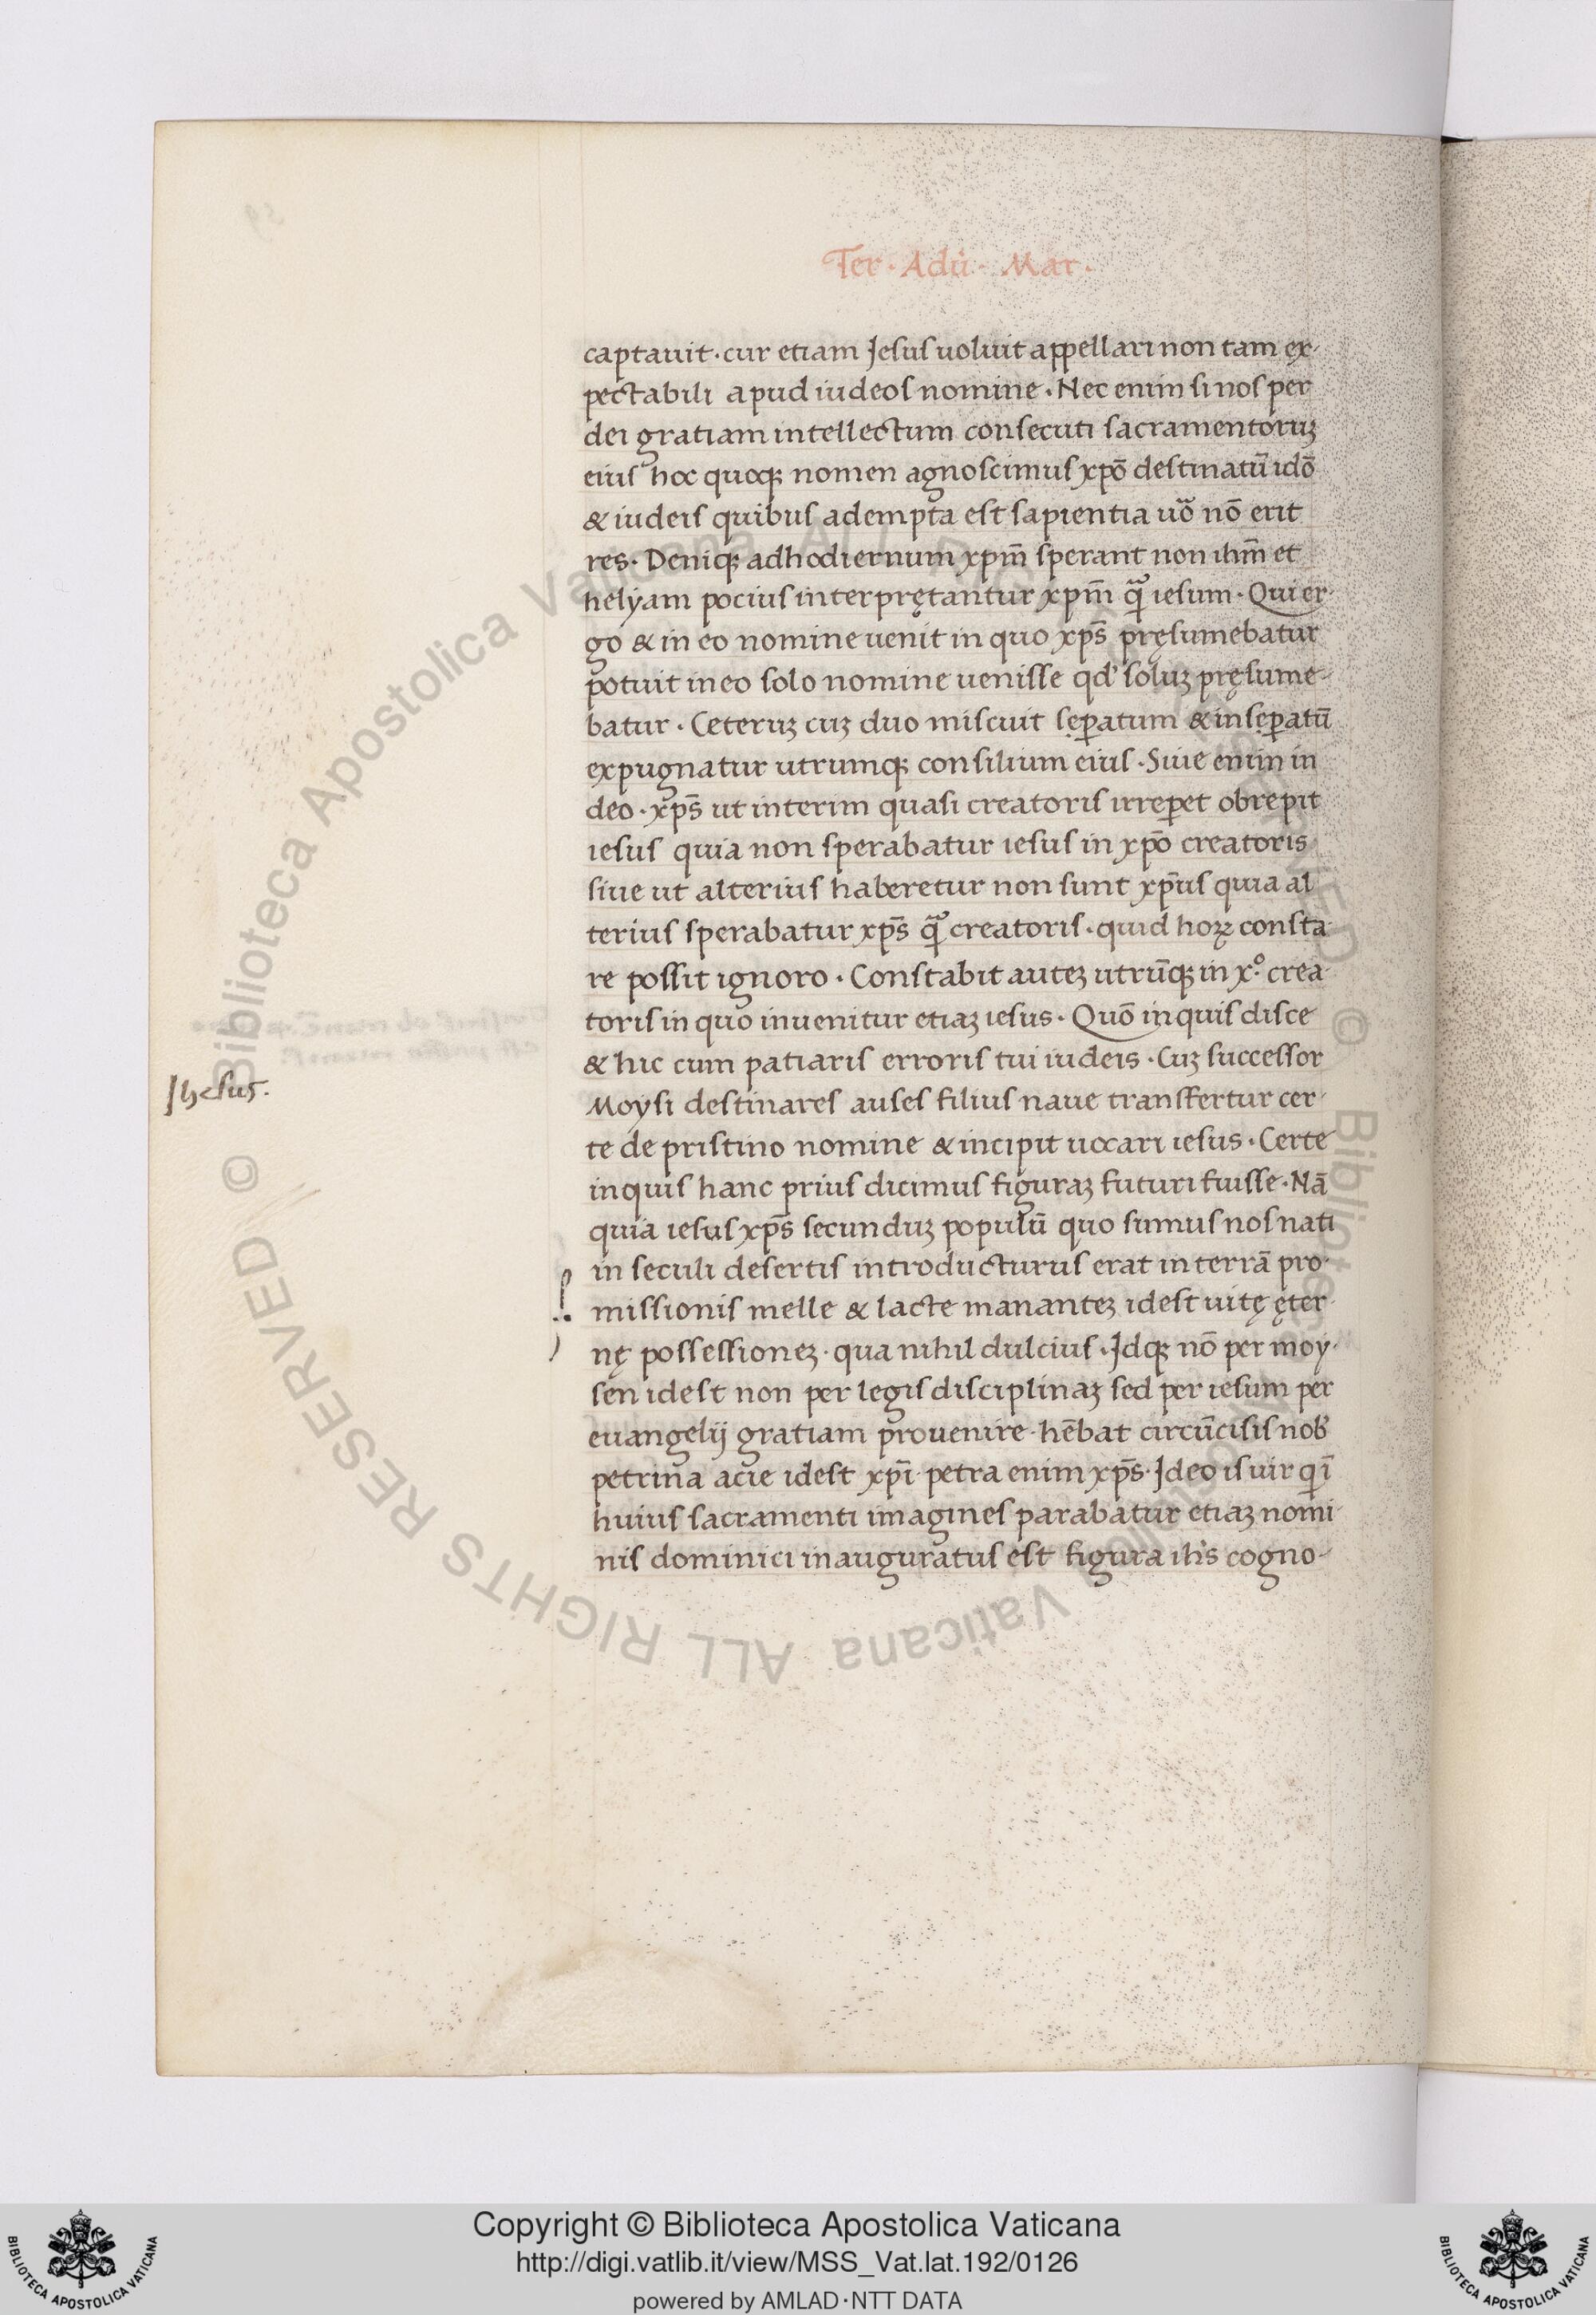 Ter · Adũ · Mar ·
captauit · cur etiam Jesus uoluit appellari non tam ex-
pectabili apud iudeos nomine · Nec enim si nos per
dei gratiam intellectum consecuti sacramentoruꝫ
eius hoc quoqꝫ nomen agnoscimus xp̄o destinatū idō
& iudeis quibus adempta est sapientia uō nō erit
res · Deniqꝫ adhodiernum xp̄m sperant non ihm̄ et
helyam pocius interprętantur xp̄m quā iesum · Qui er-
go & in eo nomine uenit in quo xp̄s pręsumebatur
potuit in eo solo nomine uenisse qd' soluꝫ pręsume-
batur · Ceteruꝫ cuꝫ duo miscuit sęꝑatum & insęꝑatū
expugnatur utrumqꝫ consilium eius · Siue enim in
deo · xp̄s ut interim quasi creatoris irreꝑet obrepit
iesus quia non sperabatur iesus in xp̄o creatoris
siue ut alterius haberetur non sunt xp̄us quia al
terius sperabatur xp̄s quā creatoris · quid hoꝝ consta-
re possit ignoro · Constabit auteꝫ utrūqꝫ in x.º crea-
toris in quo inuenitur etiaꝫ iesus · Quō inquis disce
& hic cum patiaris erroris tui iudeis · Cuꝫ successor
Moysi destinares auses filius naue transfertur cer-
te de pristino nomine & incipit uocari iesus · Certe
inquis hanc prius dicimus figuraꝫ futuri fuisse · Nā
quia iesus xp̄s secunduꝫ populū quo sumus nos nati
in seculi desertis introducturus erat in terrā pro-
missionis melle & lacte mananteꝫ idest uitę ęter-
nę possessioneꝫ · qua nihil dulcius · Jdqꝫ nō per moy-
sen idest non per legis disciplinaꝫ sed per iesum per
euangelij gratiam prouenire · hēbat circūcisis nob'
petrina acie idest xp̄i · petra enim xp̄s · Jdeo is uir qī
huius sacramenti imagines parabatur etiaꝫ nomi-
nis dominici inauguratus est figura ih's cogno-
Jhesus.
© Biblioteca Apostolica Vaticana ALL RIGHTS RESERVED © Biblioteca Apostolica Vaticana ALL RIGHTS RESERVED
Copyright © Biblioteca Apostolica Vaticana
http://digi.vatlib.it/view/MSS_Vat.lat.192/0126
powered by AMLAD·NTT DATA
BIBLIOTECA APOSTOLICA VATICANA
BIBLIOTECA APOSTOLICA VATICANA